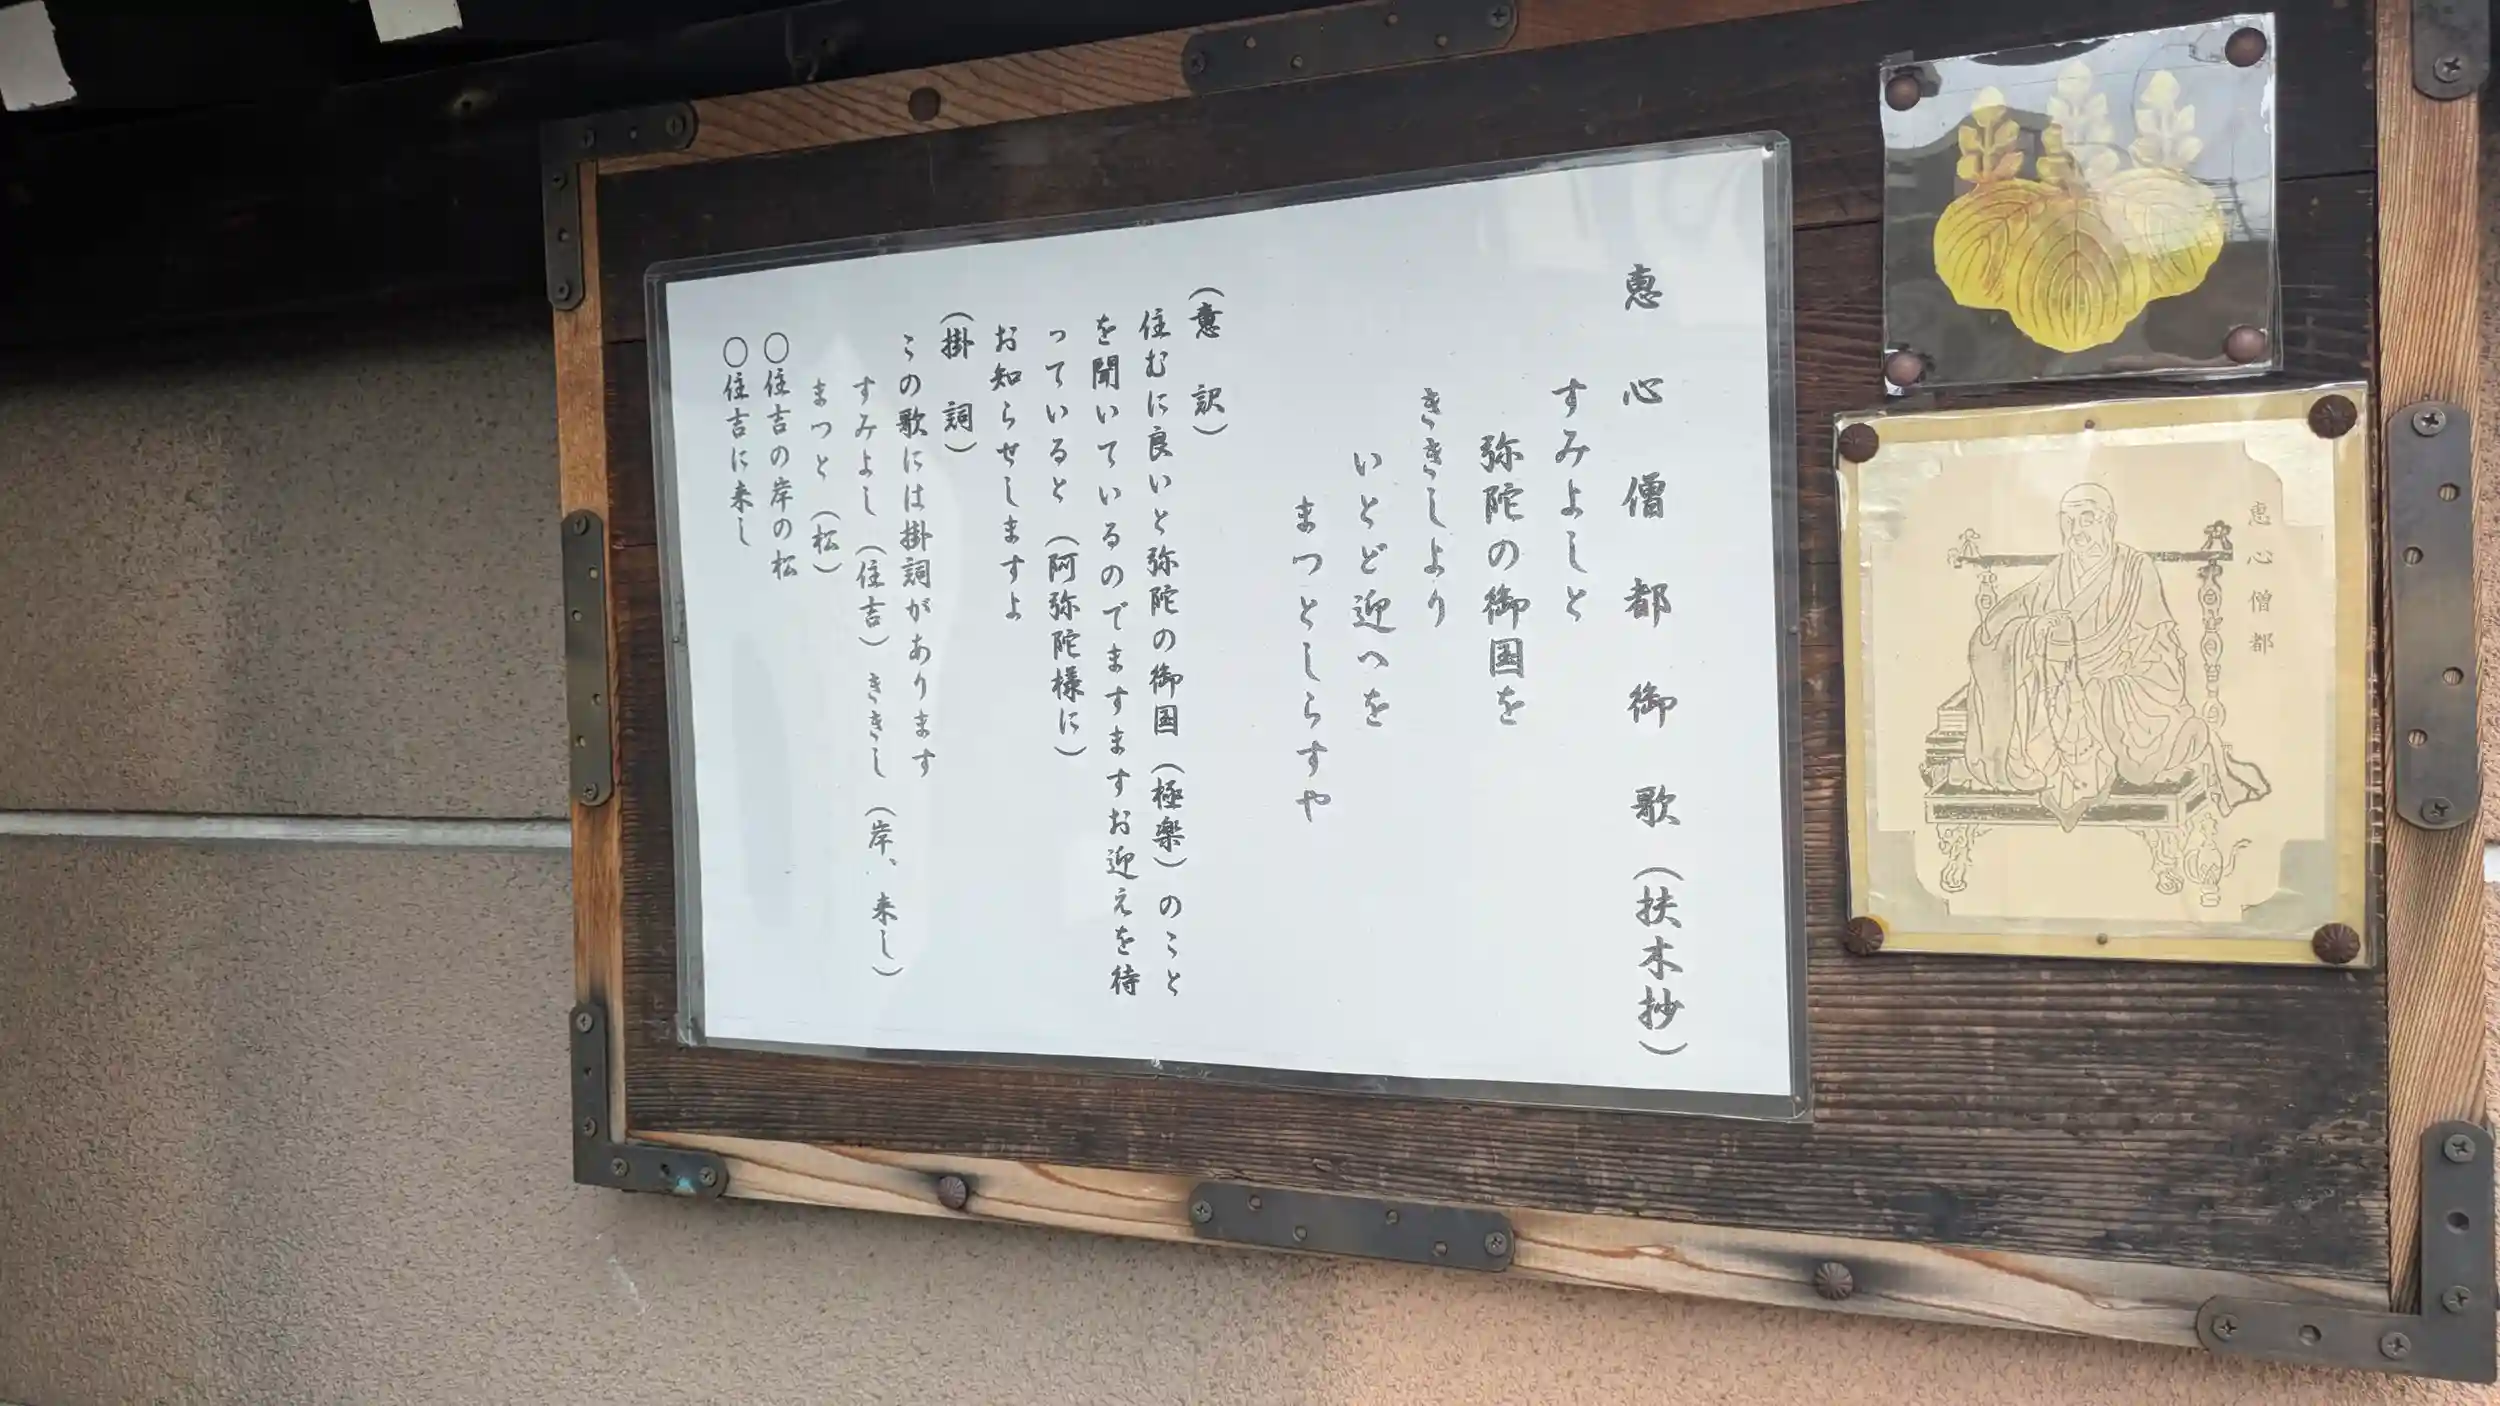 恵心僧都
恵心僧都御歌（扶木抄）
すみよしと
弥陀の御国を
ききしより
いとど迎へを
まつとしらすや
（意訳）
住むに良いと弥陀の御国（極楽）のこと
を聞いているのでますますお迎えを待
っていると（阿弥陀様に）
お知らせしますよ
（掛詞）
この歌には掛詞があります
すみよし（住吉）ききし（岸、来し）
まつと（松）
○住吉の岸の松
○住吉に来し